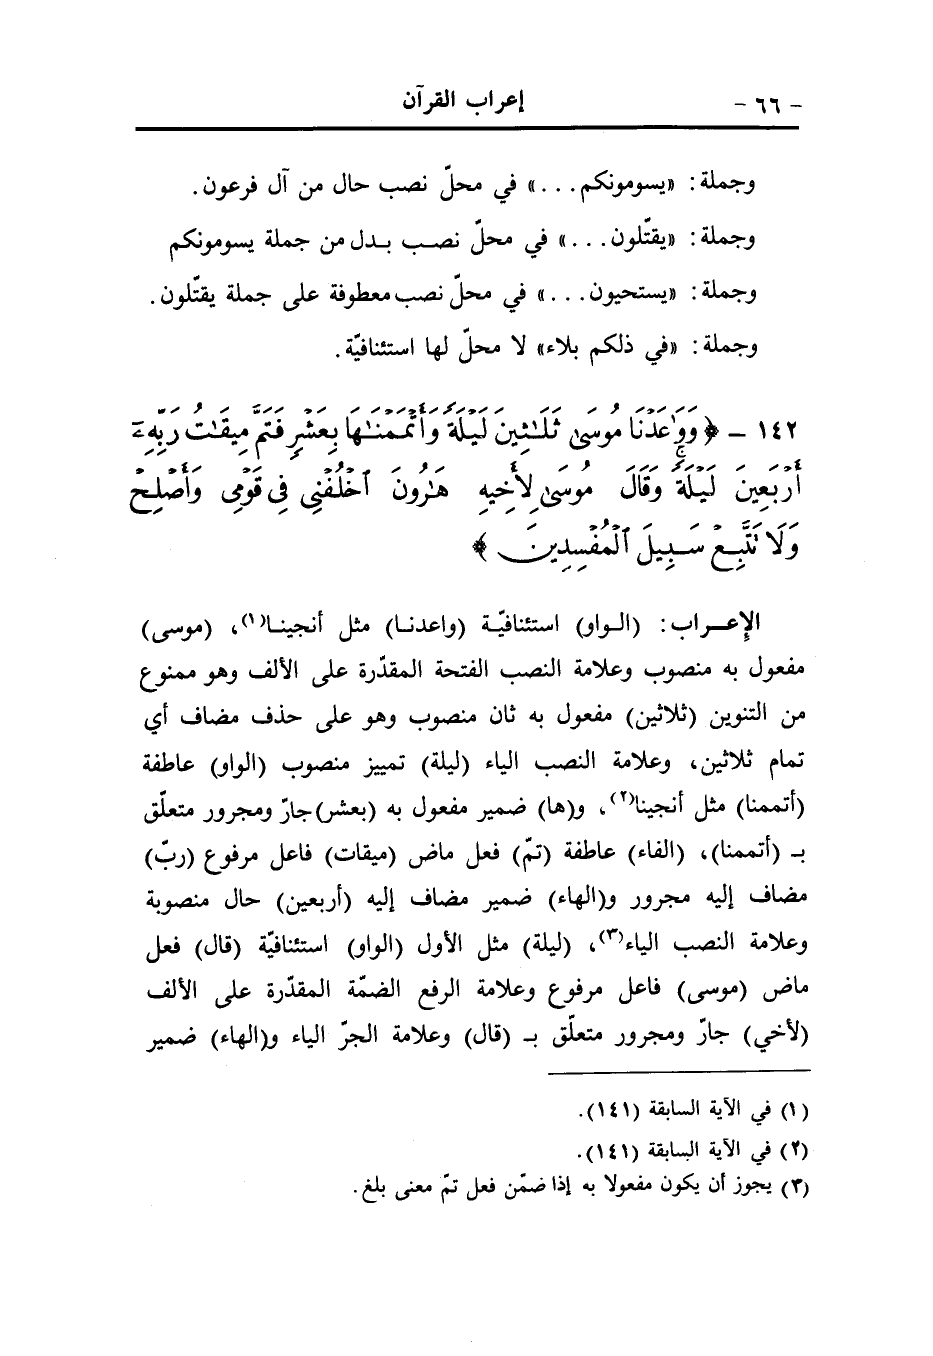 - ٦٦ - إعراب القرآن
وجملة: «يسومونكم...» في محلّ نصب حال من آل فرعون.
وجملة: «يقتّلون...» في محلّ نصب بدل من جملة يسومونكم
وجملة: «يستحيون...» في محلّ نصب معطوفة على جملة يقتّلون.
وجملة: «في ذلكم بلاء» لا محلّ لها استئنافيّة.
١٤٢ - ﴿ وَوَٰعَدْنَا مُوسَىٰ ثَلَـٰثِينَ لَيْلَةً وَأَتْمَمْنَـٰهَا بِعَشْرٍ فَتَمَّ مِيقَـٰتُ رَبِّهِۦٓ
أَرْبَعِينَ لَيْلَةً ۚ وَقَالَ مُوسَىٰ لِأَخِيهِ هَـٰرُونَ ٱخْلُفْنِى فِى قَوْمِى وَأَصْلِحْ
وَلَا تَتَّبِعْ سَبِيلَ ٱلْمُفْسِدِينَ ﴾
الإعـراب: (الـواو) استئنافيّـة (واعدنـا) مثل أنجينـا(١)، (موسى)
مفعول به منصوب وعلامة النصب الفتحة المقدّرة على الألف وهو ممنوع
من التنوين (ثلاثين) مفعول به ثان منصوب وهو على حذف مضاف أي
تمام ثلاثين، وعلامة النصب الياء (ليلة) تمييز منصوب (الواو) عاطفة
(أتممنا) مثل أنجينا(٢)، و(ها) ضمير مفعول به (بعشر) جارّ ومجرور متعلّق
بـ (أتممنا)، (الفاء) عاطفة (تمّ) فعل ماض (ميقات) فاعل مرفوع (ربّ)
مضاف إليه مجرور و(الهاء) ضمير مضاف إليه (أربعين) حال منصوبة
وعلامة النصب الياء(٣)، (ليلة) مثل الأول (الواو) استئنافيّة (قال) فعل
ماض (موسى) فاعل مرفوع وعلامة الرفع الضمّة المقدّرة على الألف
(لأخي) جارّ ومجرور متعلّق بـ (قال) وعلامة الجرّ الياء و(الهاء) ضمير
(١) في الآية السابقة (١٤١).
(٢) في الآية السابقة (١٤١).
(٣) يجوز أن يكون مفعولا به إذا ضمّن فعل تمّ معنى بلغ.